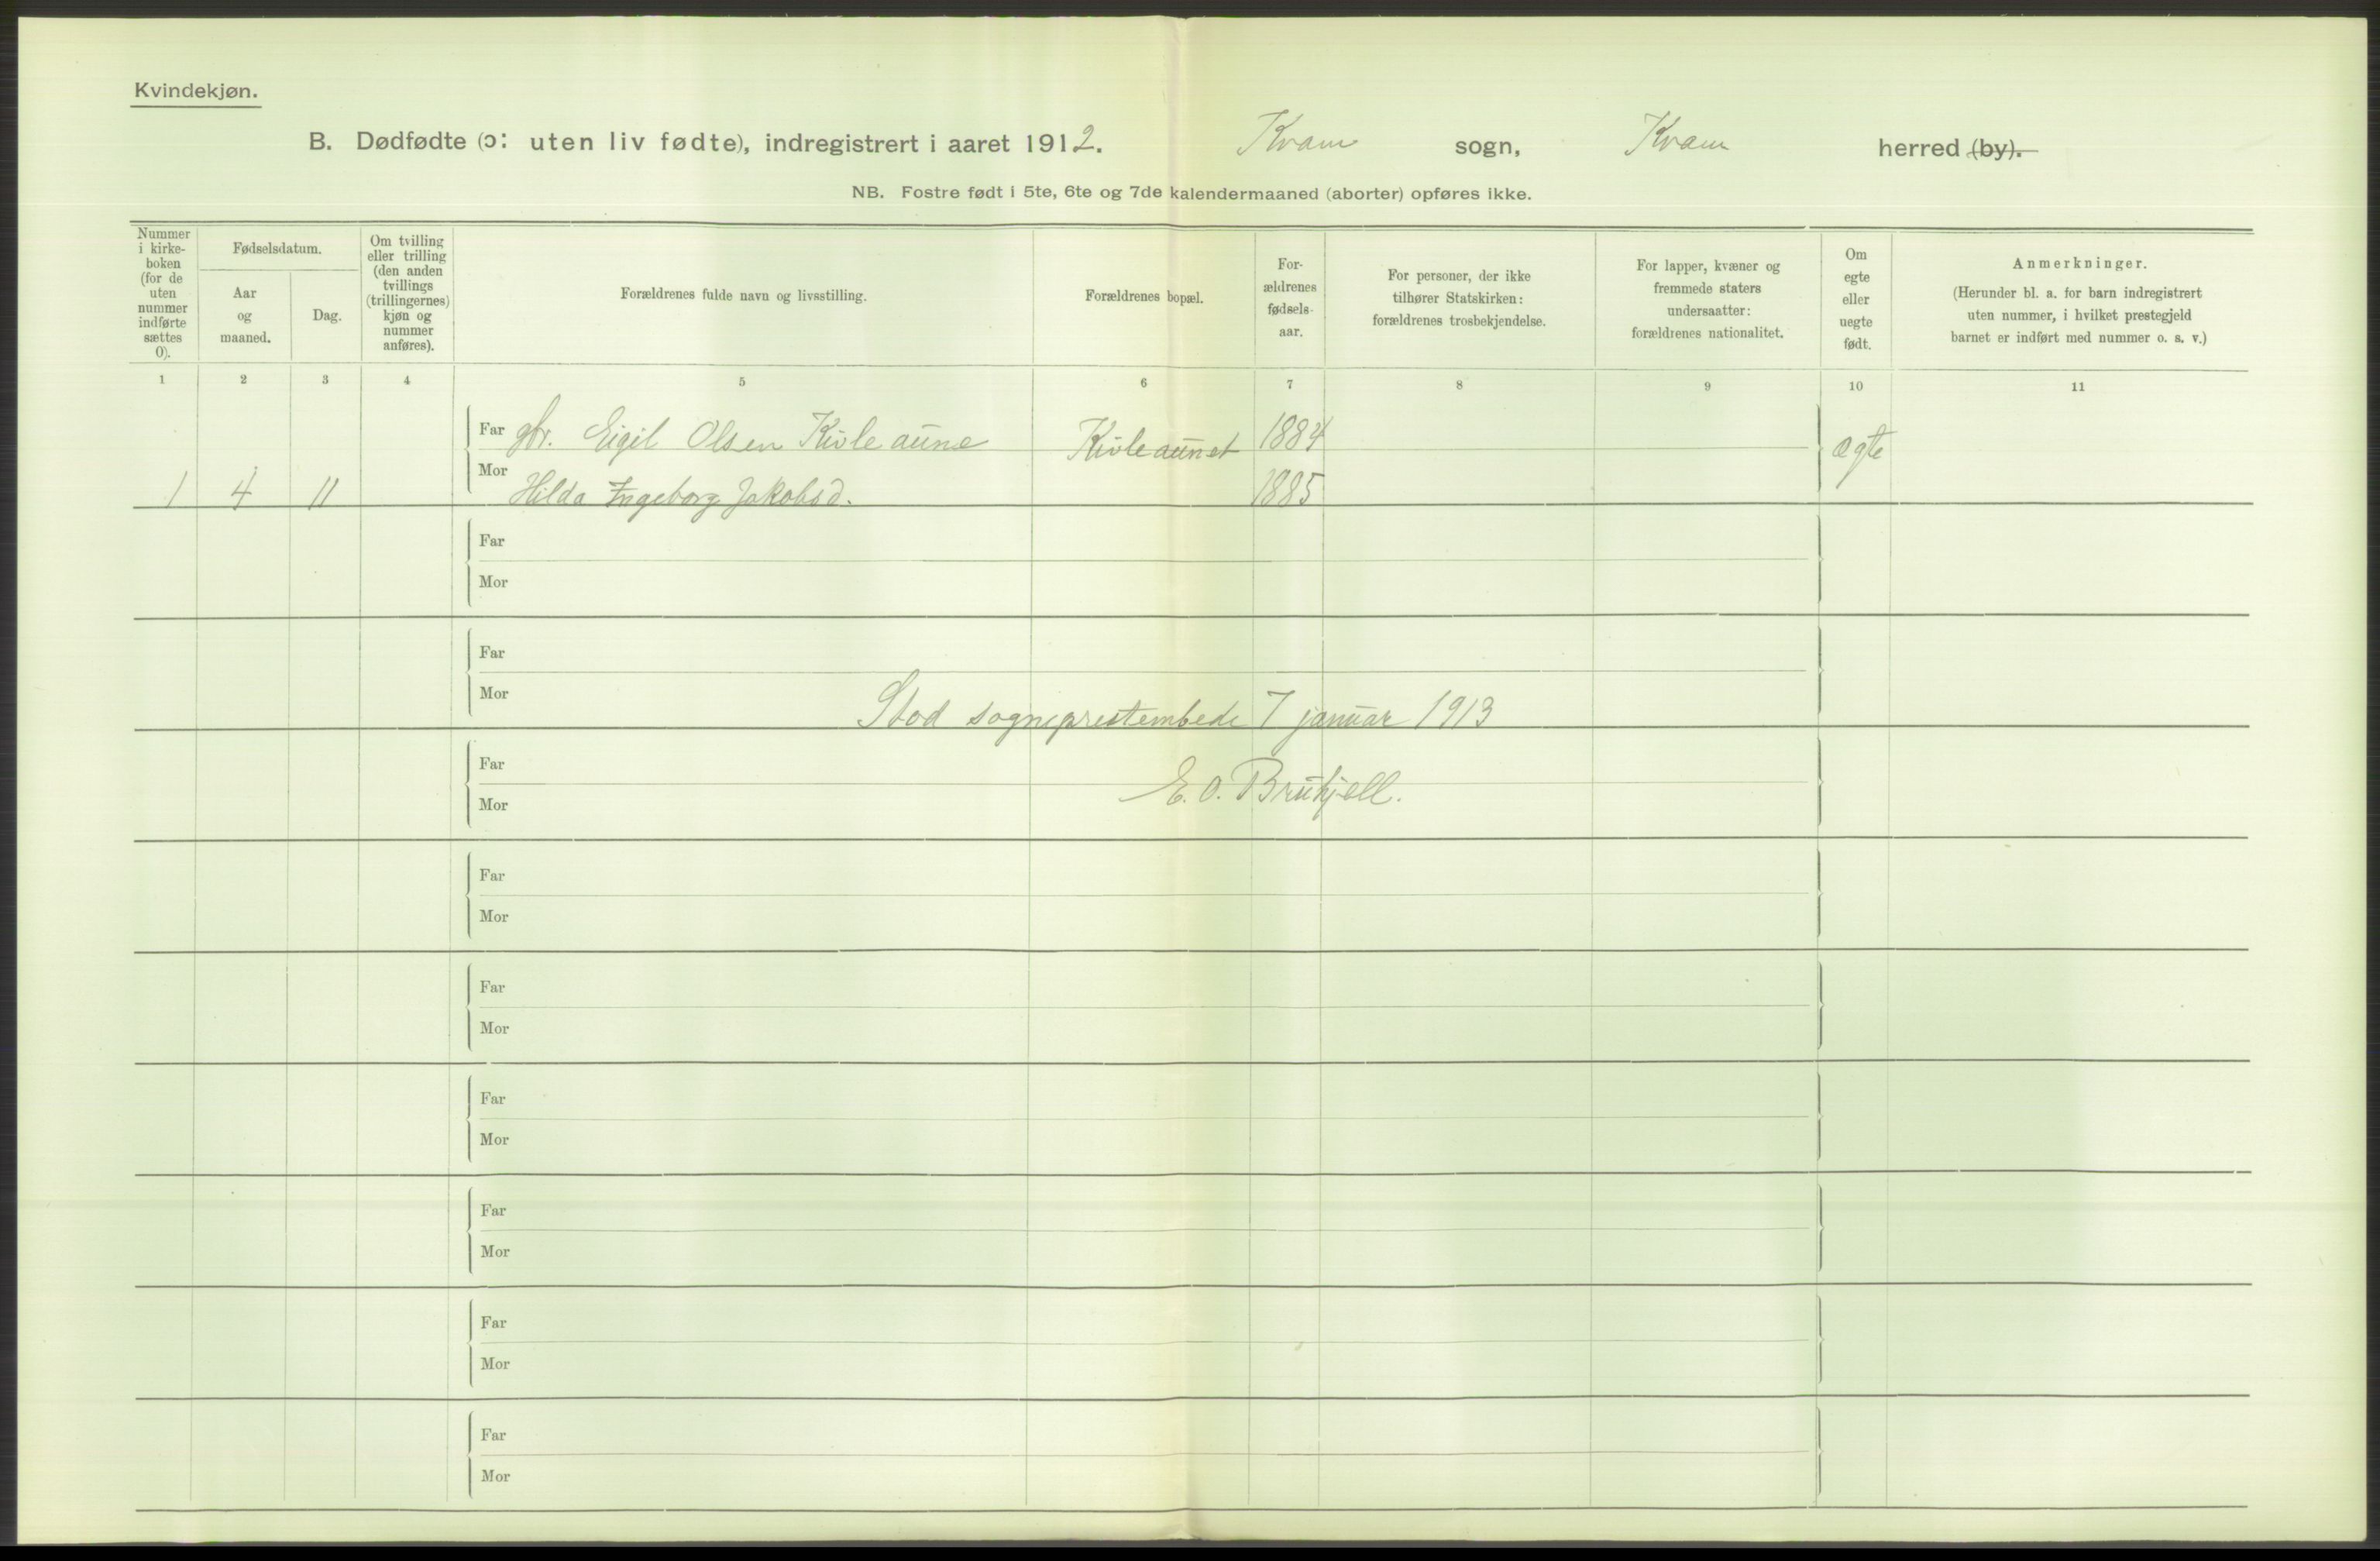 Kvindekjøn.
B. Dødfødte (ɔ: uten liv fødte), indregistrert i aaret 1912. Kvam sogn, Kvam herred (by).
NB. Fostre født i 5te, 6te og 7de kalendermaaned (aborter) opføres ikke.
Nummer
i kirke-
boken
(for de
uten
nummer
indførte
sættes
0).
Fødselsdatum.
Aar
og
maaned.
Dag.
Om tvilling
eller trilling
(den anden
tvillings
(trillingernes)
kjøn og
nummer
anføres).
Forældrenes fulde navn og livsstilling.
Forældrenes bopæl.
For-
ældrenes
fødsels-
aar.
For personer, der ikke
tilhører Statskirken:
forældrenes trosbekjendelse.
For lapper, kvæner og
fremmede staters
undersaatter:
forældrenes nationalitet.
Om
egte
eller
uegte
født.
Anmerkninger.
(Herunder bl. a. for barn indregistrert
uten nummer, i hvilket prestegjeld
barnet er indført med nummer o. s. v.)
1 2 3 4 5 6 7 8 9 10 11
Far gbr. Eigil Olsen Kvleaune Kvleaunet 1884 ægte
1 4 11 Mor Hilda Ingeborg Jakobsd. 1885
Far
Mor
Far
Mor
Stod sogneprestembede 7 januar 1913
Far
E. O. Brufjell.
Mor
Far
Mor
Far
Mor
Far
Mor
Far
Mor
Far
Mor
Far
Mor